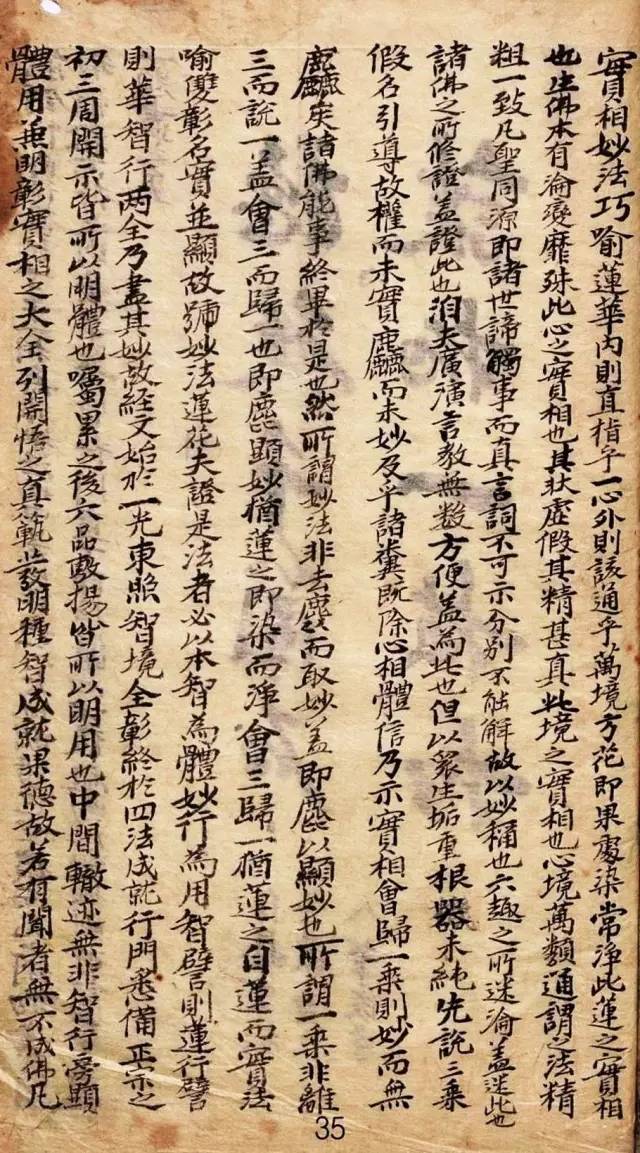 實相妙法巧喻蓮華內則直指乎一心外則該通乎萬境方花即果處染常淨此蓮之實相
也生佛本有淪變靡殊此心之實相也其狀虛假其精甚真此境之實相也心境萬類通謂之法精
粗一致凡聖同源即諸世諦觸事而真言詞不可示分別不能解故以妙稱也六趣之所迷淪盖迷此也
諸佛之所修證盖證此也洎夫廣演言教無数方便盖為此也但以衆生垢重根器未純先說三乘
假名引導故權而未實麤而未妙及乎諸糞既除心相體信乃示實相會歸一乘則妙而無
麤矣諸佛能事終畢於是也然所謂妙法非去麤而取妙盖即麤以顯妙也所謂一乘非離
三而說一盖會三而歸一也即麤顯妙猶蓮之即染而淨會三歸一猶蓮之自蓮而實法
喻雙彰名實並顯故號妙法蓮花夫證是法者必以本智為體妙行為用智譬則蓮行譬
則華智行两全乃盡其妙故經文始於一光東照智境全彰終於四法成就行門悉備正宗之
初三周開示皆所以明體也囑累之後六品敷揚皆所以明用也中間轍迹無非智行旁顯
體用兼明彰實相之大全列開悟之真範發明種智成就果德故若有聞者無不成佛凡
35